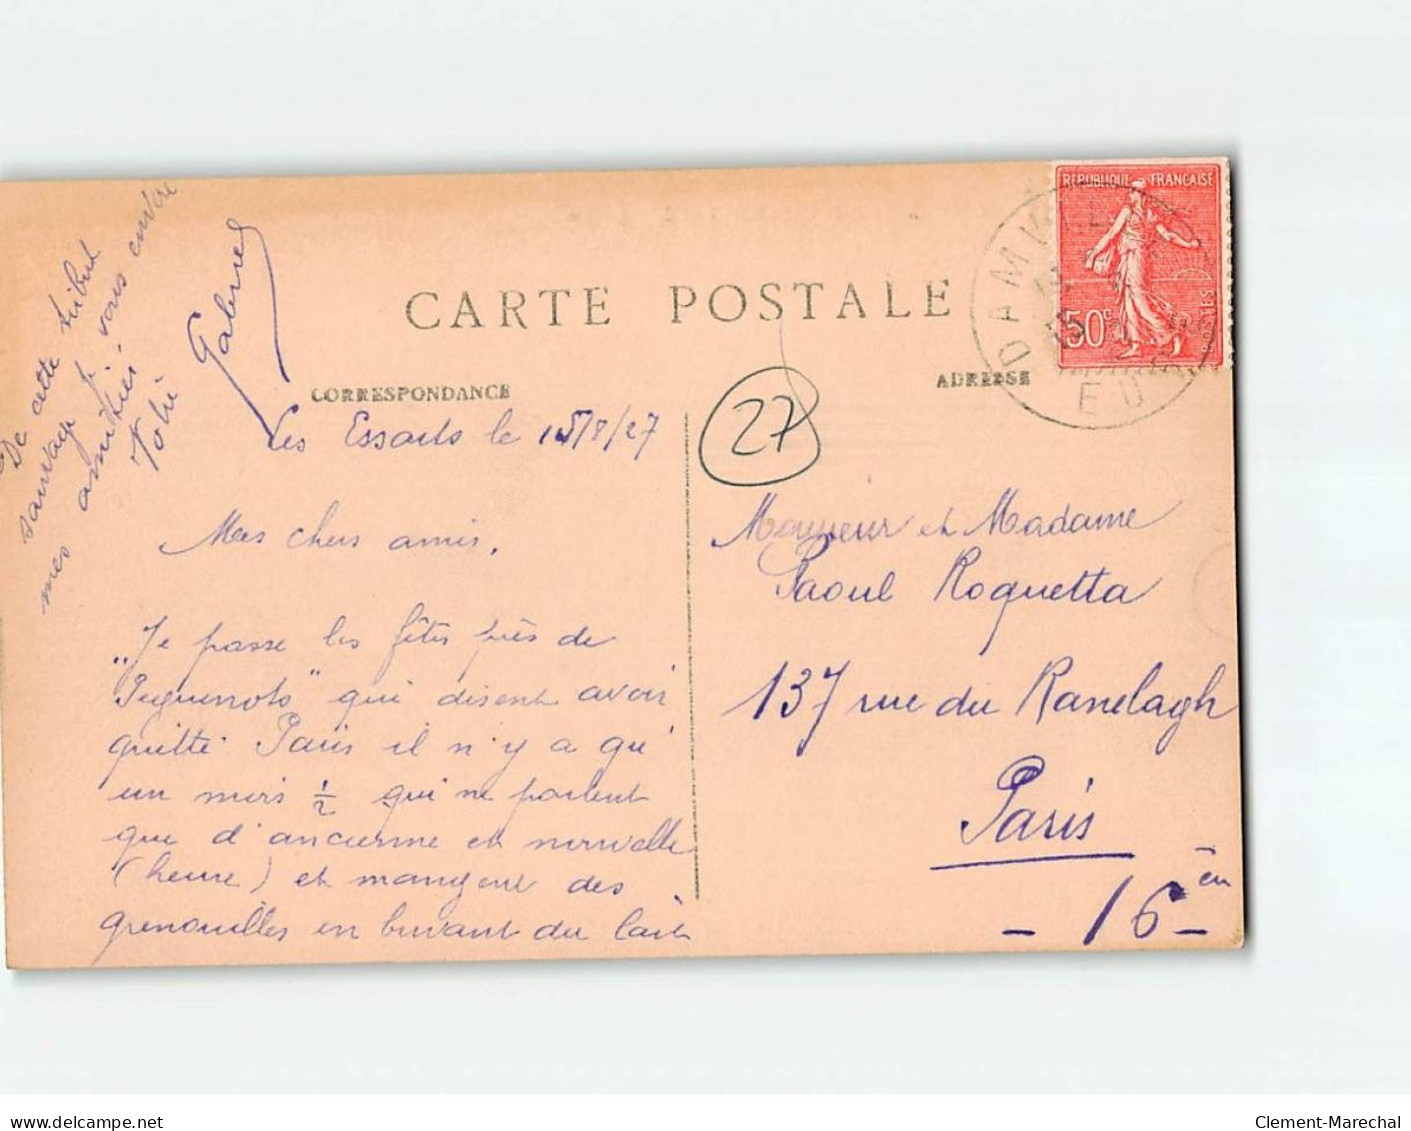 De cette tribut
sauvage je vous envoie
mes amitiés
Gabriel
CARTE POSTALE
CORRESPONDANCE
ADRESSE
REPUBLIQUE FRANCAISE
50c
POSTES
DAMVILLE
EURE
27
Les Essarts le 15/8/27
Mes chers amis,
"Je passe les fêtes près de
" qui disent avoir
quitté Paris il n'y a qu'
un mois 1/2 qui ne parlent
que d'ancienne et nouvelle
(heure) et mangent des
grenouilles en buvant du lait
Monsieur et Madame
Raoul Roquetta
137 rue du Ranelagh
Paris
- 16 - en
delcampe.net
Clement-Marechal